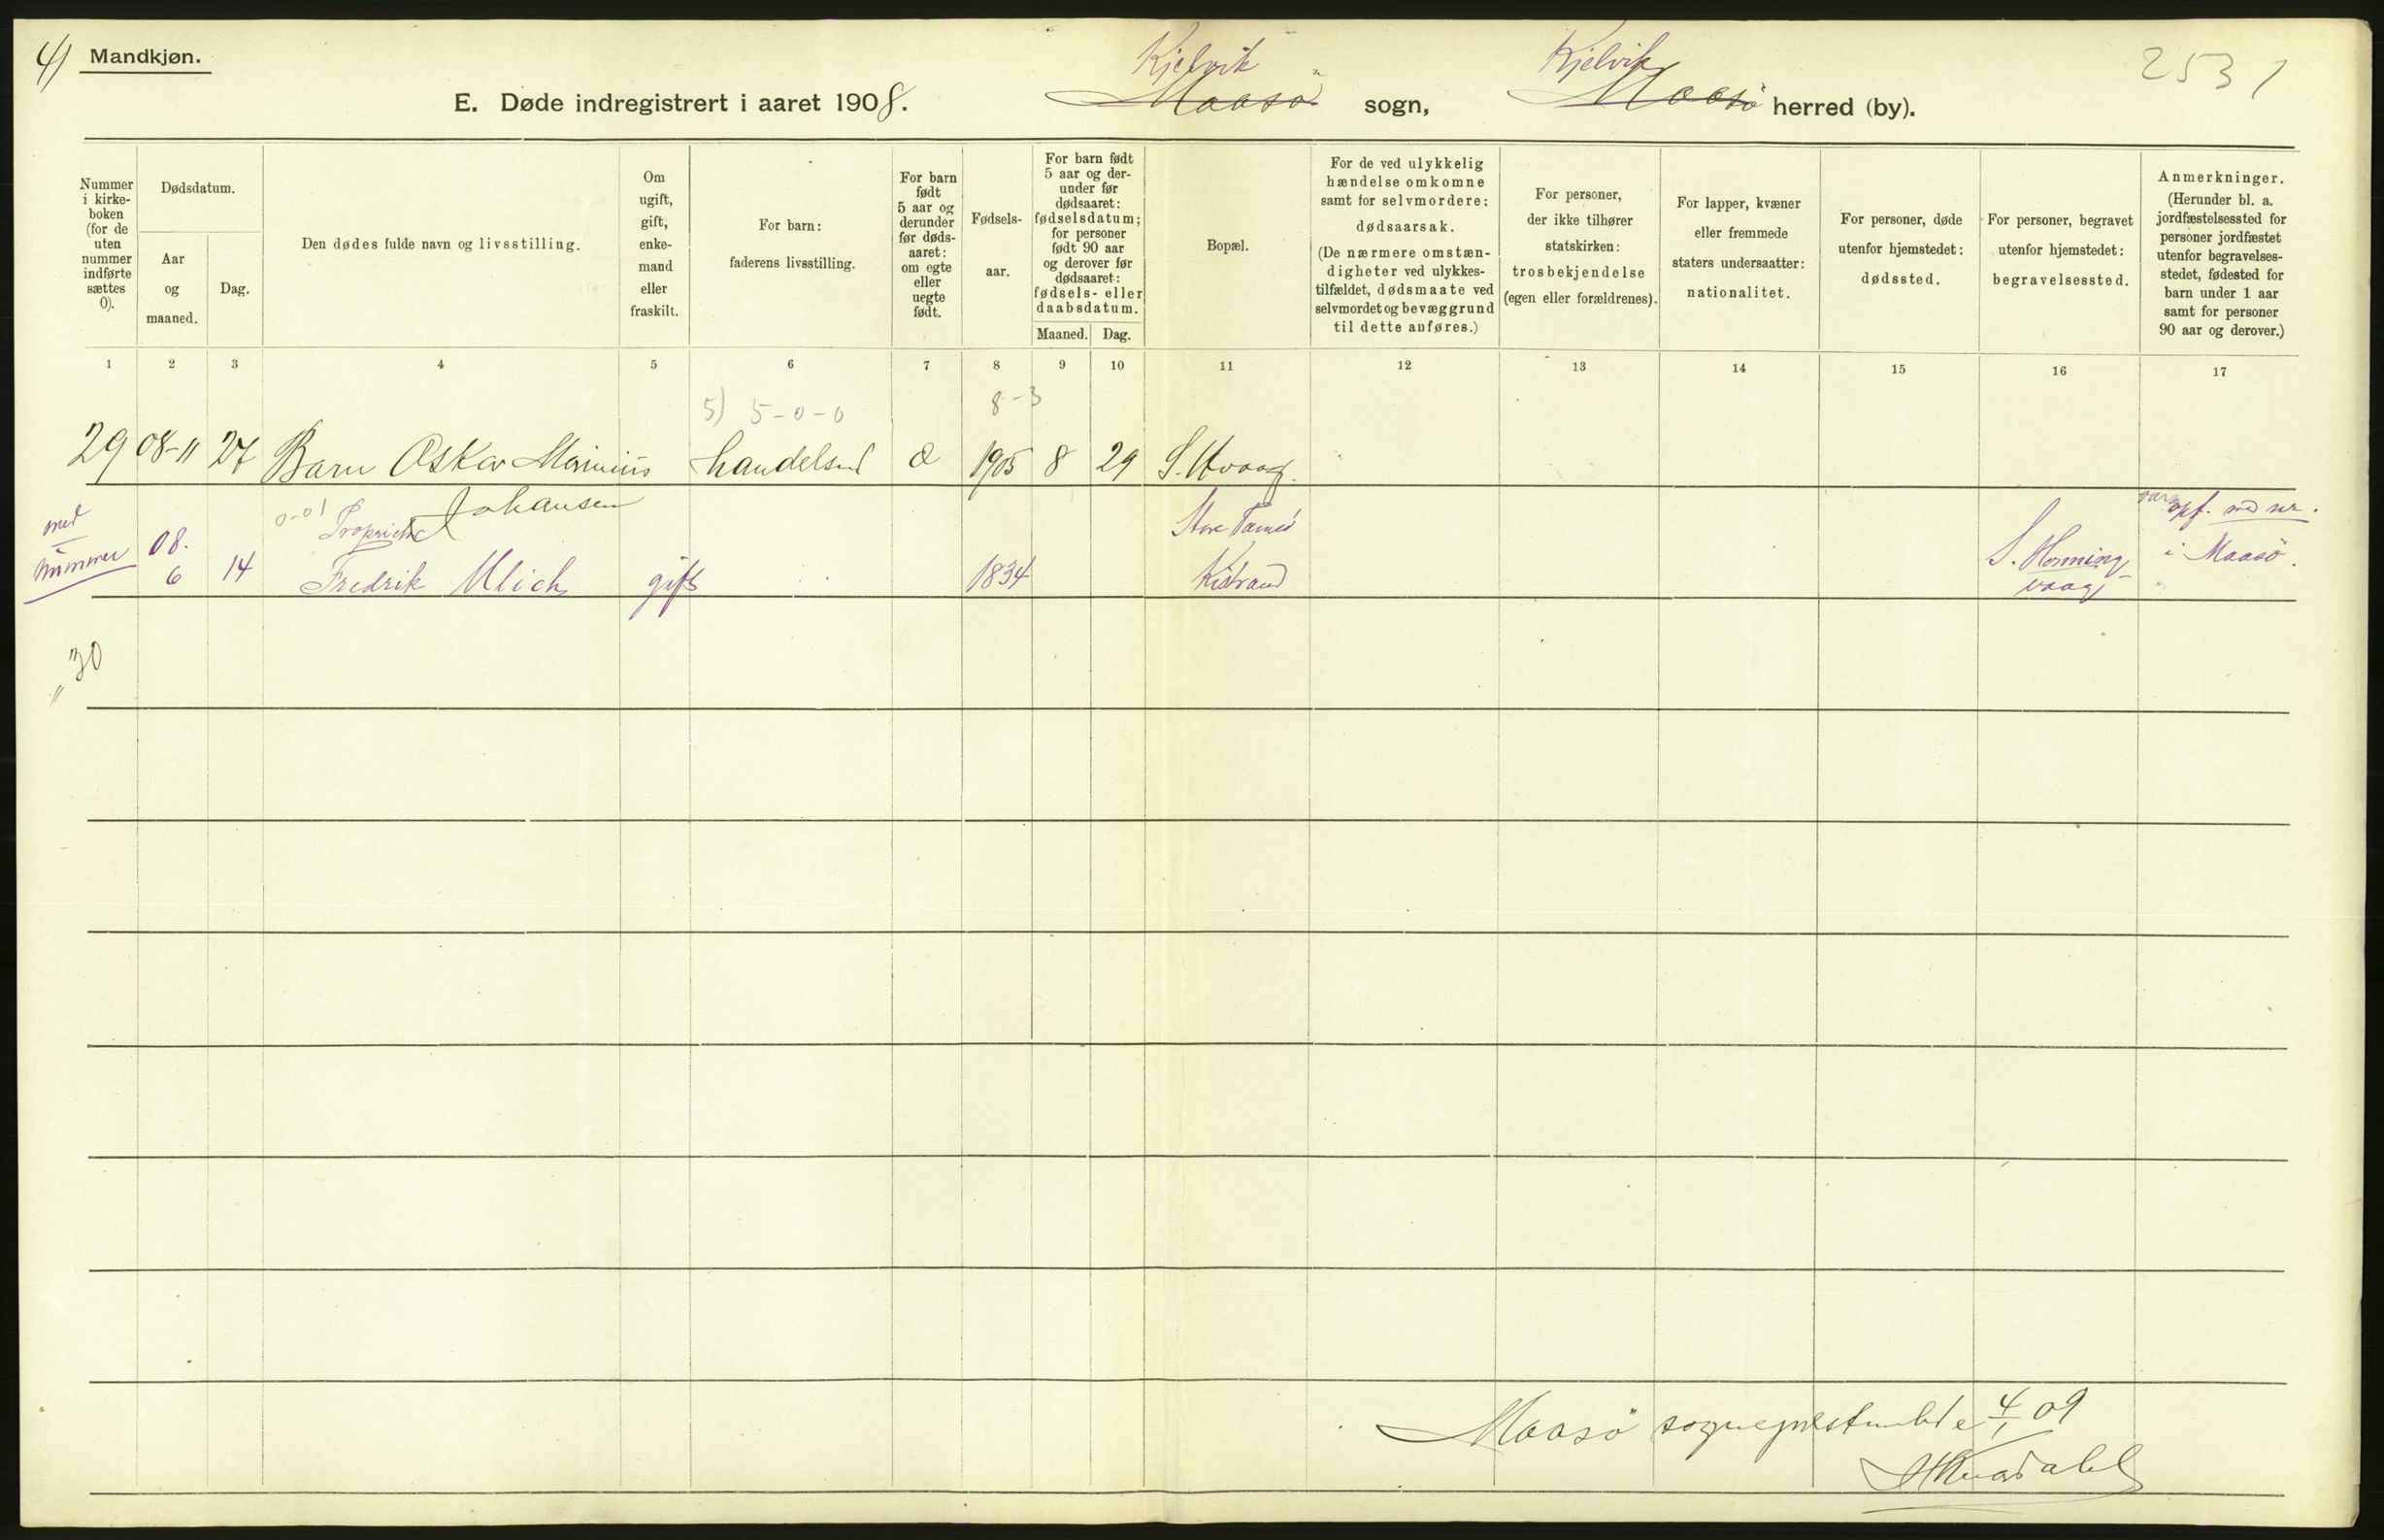 4) Mandkjøn.
Kjelvik Kjelvik 2531
E. Døde indregistrert i aaret 1908. Maasø sogn, Maasø herred (by).
Nummer i kirke-boken (for de uten nummer indførte sættes 0).
Dødsdatum.
Aar og maaned.
Dag.
Den dødes fulde navn og livsstilling.
Om ugift, gift, enke-mand eller fraskilt.
For barn: faderens livsstilling.
For barn født 5 aar og derunder før døds-aaret: om egte eller uegte født.
Fødsels-aar.
For barn født 5 aar og der-under før dødsaaret: fødselsdatum; for personer født 90 aar og derover før dødsaaret: fødsels- eller daabsdatum.
Maaned. Dag.
Bopæl.
For de ved ulykkelig hændelse omkomne samt for selvmordere: dødsaarsak. (De nærmere omstæn-digheter ved ulykkes-tilfældet, dødsmaate ved selvmordet og bevæggrund til dette anføres.)
For personer, der ikke tilhører statskirken: trosbekjendelse (egen eller forældrenes).
For lapper, kvæner eller fremmede staters undersaatter: nationalitet.
For personer, døde utenfor hjemstedet: dødssted.
For personer, begravet utenfor hjemstedet: begravelsessted.
Anmerkninger. (Herunder bl. a. jordfæstelsessted for personer jordfæstet utenfor begravelses-stedet, fødested for barn under 1 aar samt for personer 90 aar og derover.)
1 2 3 4 5 6 7 8 9 10 11 12 13 14 15 16 17
5) 5-0-0 8-3
29 08-11 27 Barn Oskar Marinius handelsm 1905 8 29 S.
Johansen
0-01
08. Store Tamsö opf. med nr.
nummer 6 14 Fredrik Ulich gift 1834 Kistrand S. Honning i Maasö.
vaag
30
Maasö 4/1 09